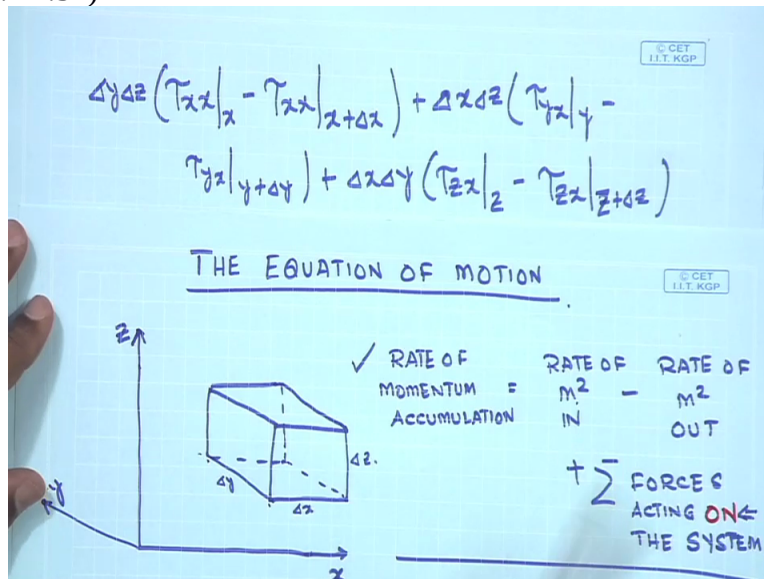 © CET
I.I.T. KGP
ΔyΔz(τxx|x - τxx|x+Δx) + ΔxΔz(τyx|y -
τyx|y+Δy) + ΔxΔy(τzx|z - τzx|z+Δz)
THE EQUATION OF MOTION
© CET
I.I.T. KGP
z
✓ RATE OF MOMENTUM ACCUMULATION = RATE OF m² IN - RATE OF m² OUT
+ Σ FORCES
ACTING ON ←
THE SYSTEM
Δz.
Δy
Δx
y
x